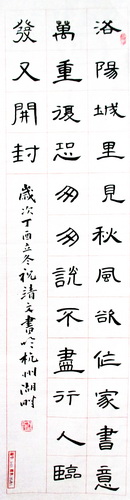 洛陽城里見秋風欲作家書意
萬重復恐匆匆說不盡行人臨
發又開封
歲次丁酉立冬祝清文書於杭州湖畔